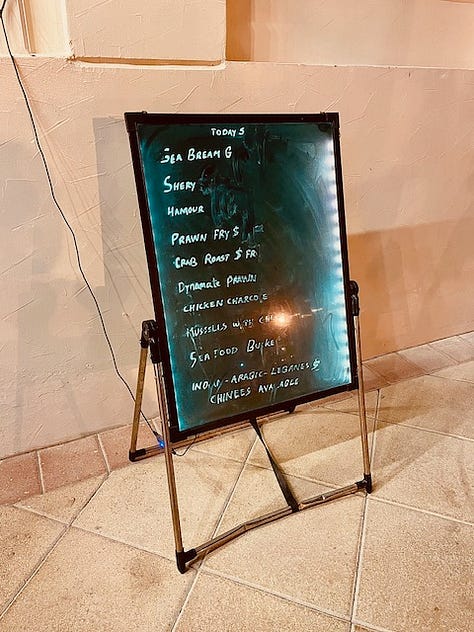 TODAYS
SEA BREAM G
SHERY
HAMOUR
PRAWN FRY $
CRAB ROAST $ FR
DYNAMATE PRAWN
CHICKEN CHARCO E
MUSSELLS WITH
SEAFOOD BU KE
- ARABIC - LEBANES $
CHINEES AVA ABLE